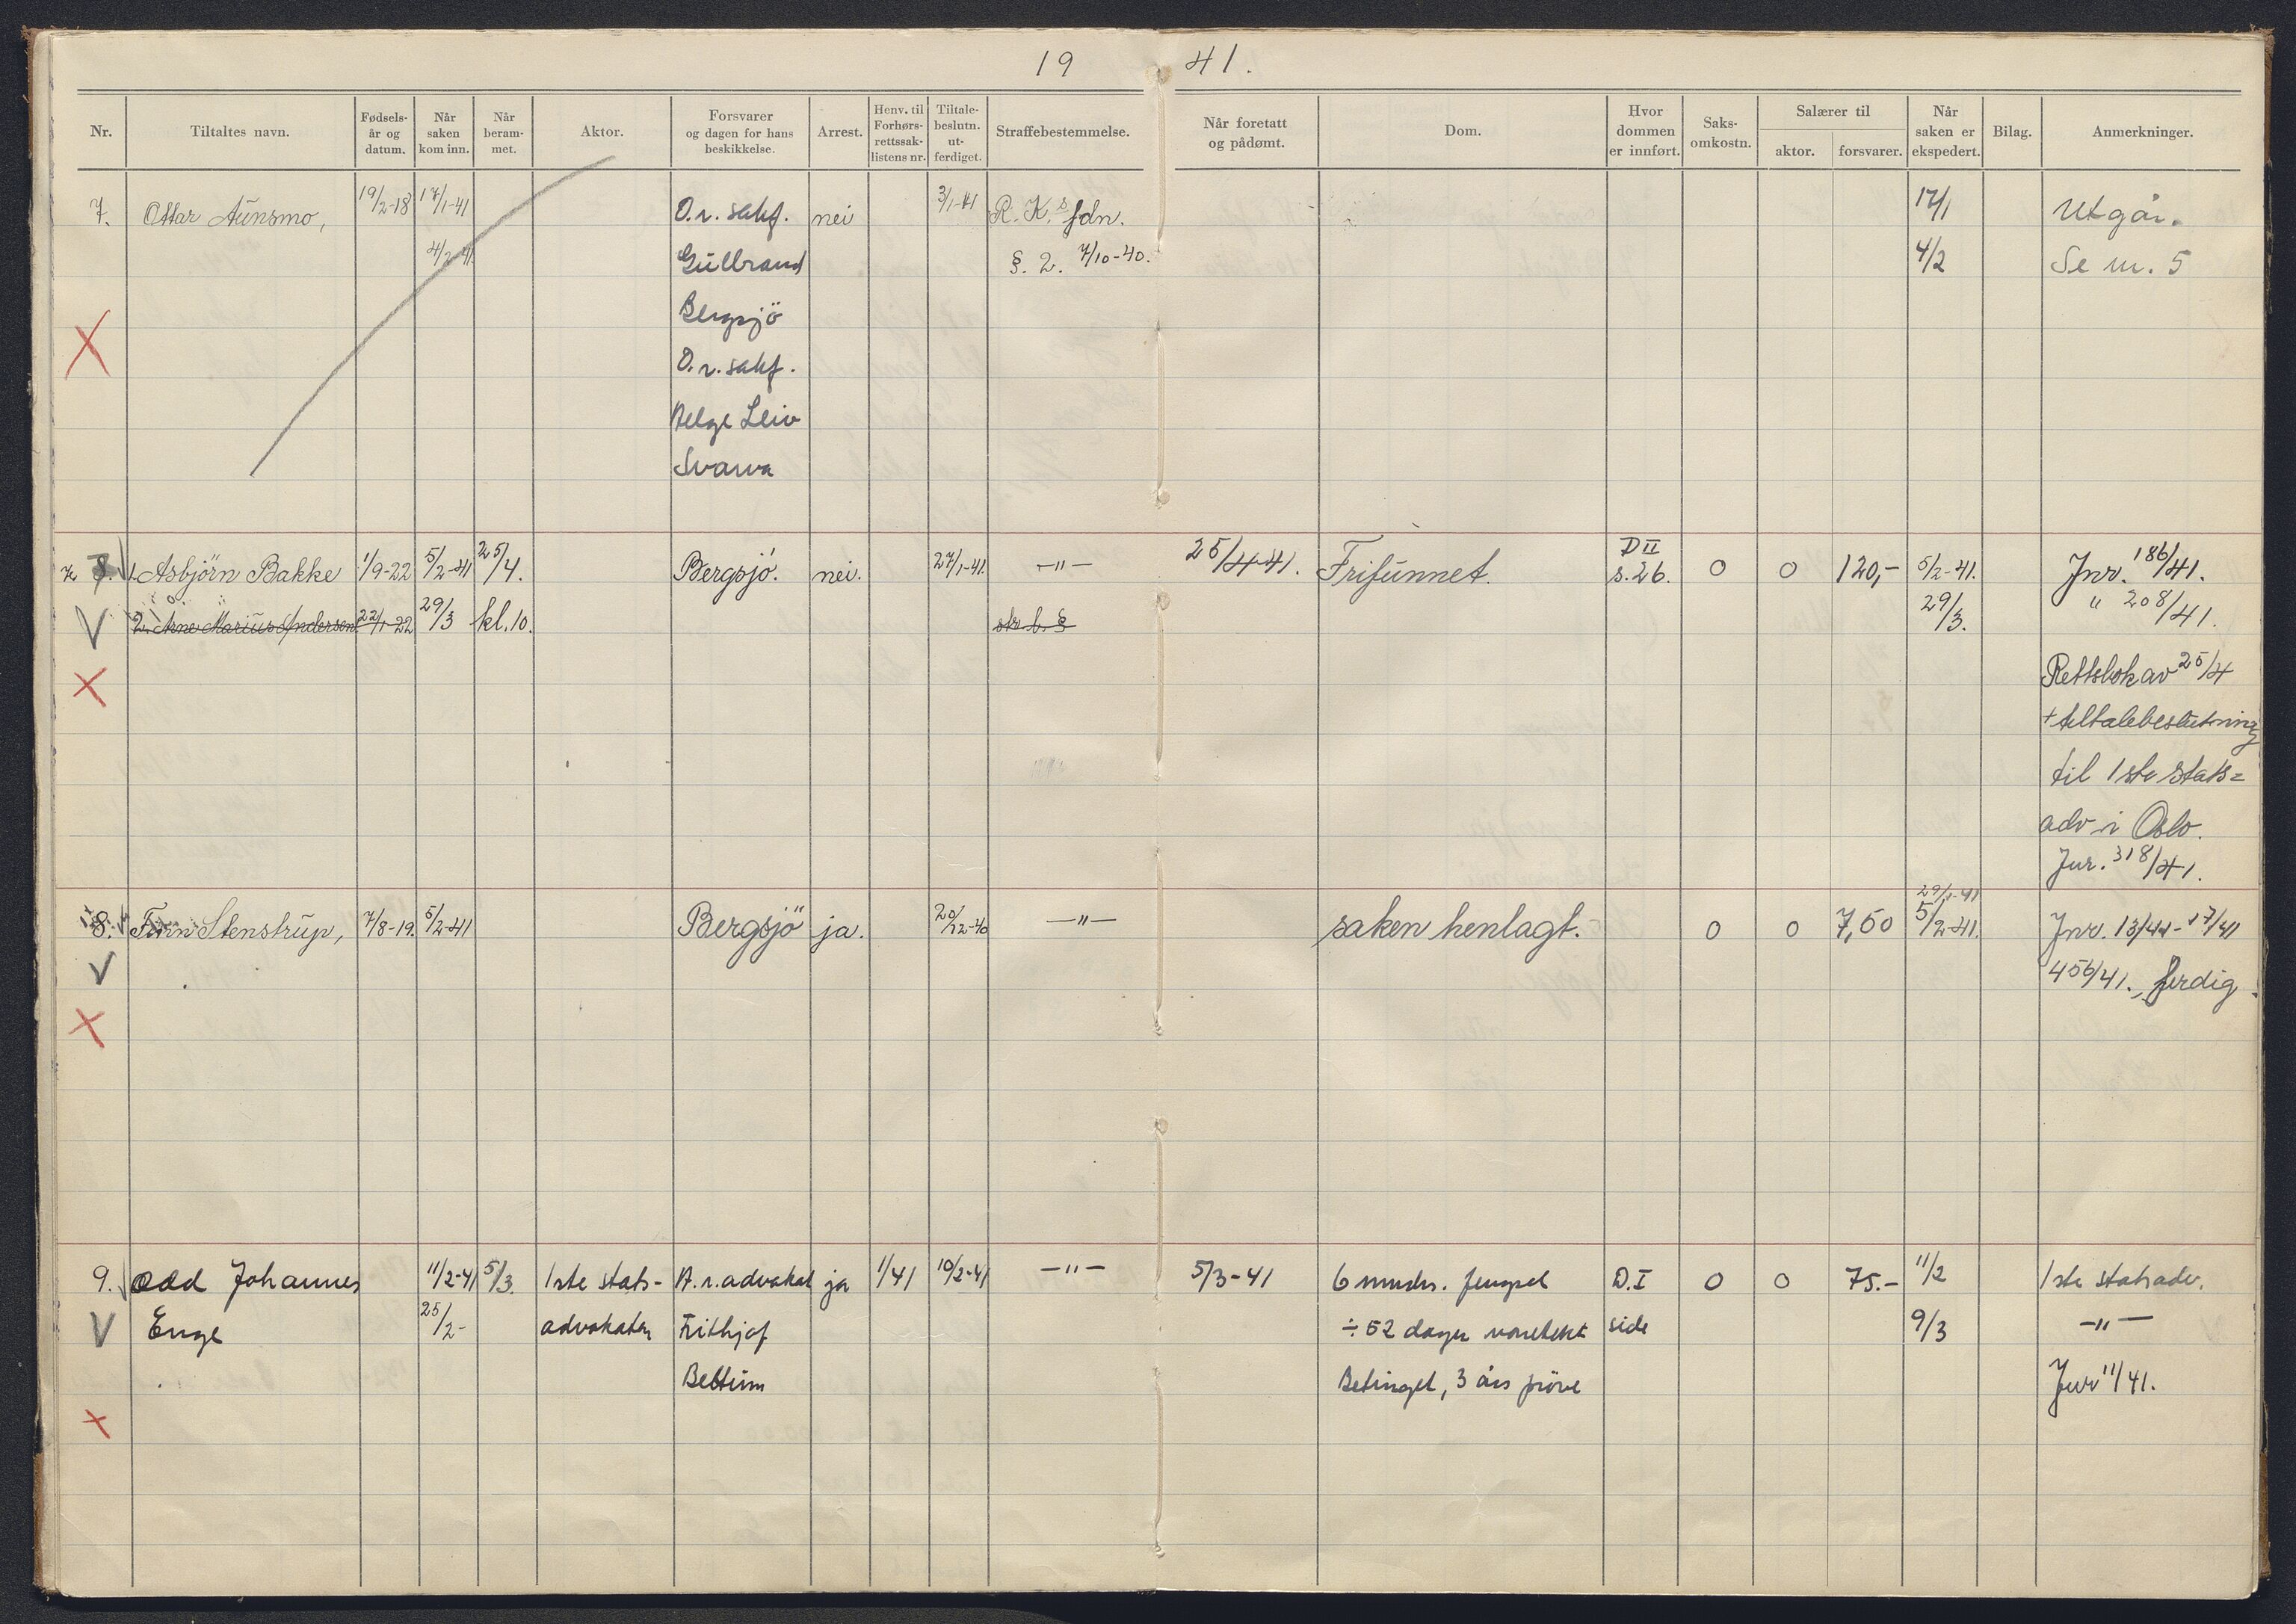 19 41.
Nr. Tiltaltes navn. Fødsels-år og datum. Når saken kom inn. Når beram-met. Aktor. Forsvarer og dagen for hans beskikkelse. Arrest. Henv. til Forhørs-rettssak-listens nr. Tiltale-beslutn. ut-ferdiget. Straffebestemmelse. Når foretatt og pådømt. Dom. Hvor dommen er innført. Saks-omkostn. Salærer til aktor. forsvarer. Når saken er ekspedert. Bilag. Anmerkninger.
7. Ottar Aunsmo, 19/2-18 17/1-41 O.r. sakf. nei 3/1-41 R.K.s fdn. 17/1 Utgår.
4/2-41. Gulbrand §. 2. 7/10-40. 4/2 Se nr. 5
Bergsjö
O.r. sakf.
Helge Leiv
Svarva
7. 8. 1. Asbjörn Bakke 1/9-22 5/2-41 25/4. Bergsjö. nei. 27/1-41. —"— 25/4-41. Frifunnet. D II s. 26. 0 0 120,- 5/2-41. Jnr. 186/41.
2. Arne Marius Andersen 22/1-22 29/3 kl. 10. str. l. § 29/3. " 208/41.
Rettsbok av 25/4
+ tiltalebeslutning
til 1ste stats=
adv i Oslo.
Jnr. 318/41.
29/1-41
8. Finn Stenstrup, 7/8-19. 5/2-41 Bergsjö ja. 20/12-40 —"— saken henlagt. 0 0 7,50 5/2-41. Jnr. 13/41-17/41
456/41. ferdig.
9. Odd Johannes 11/2-41 5/3. 1ste stats- H.r. advokat ja 1/41 10/2-41 —"— 5/3-41 6 mndrs. fengsel D.I 0 0 75.- 11/2 1ste statsadv.
Enge 25/2- advokaten Frithjof ÷ 52 dager varetekt side 9/3 —"—
Bettum Betinget, 3 års pröve Jnr 11/41.